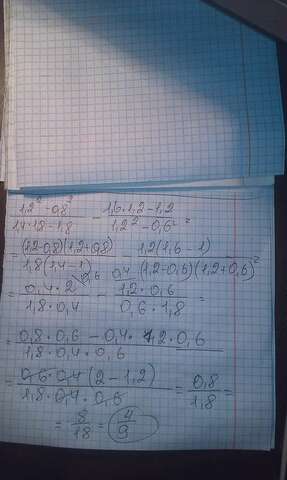 1,2² - 0,8² / 1,4 · 1,8 - 1,8 - 1,6 · 1,2 - 1,2 / 1,2² - 0,6² =
= (1,2-0,8)(1,2+0,8) / 1,8(1,4-1) - 1,2(1,6-1) / (1,2-0,6)(1,2+0,6) =
= 0,4 · 2 / 1,8 · 0,4 - 1,2 · 0,6 / 0,6 · 1,8 =
= 0,8 · 0,6 - 0,4 · 1,2 · 0,6 / 1,8 · 0,4 · 0,6
= 0,6 · 0,4 (2 - 1,2) / 1,8 · 0,4 · 0,6 = 0,8 / 1,8 =
= 8/18 = 4/9